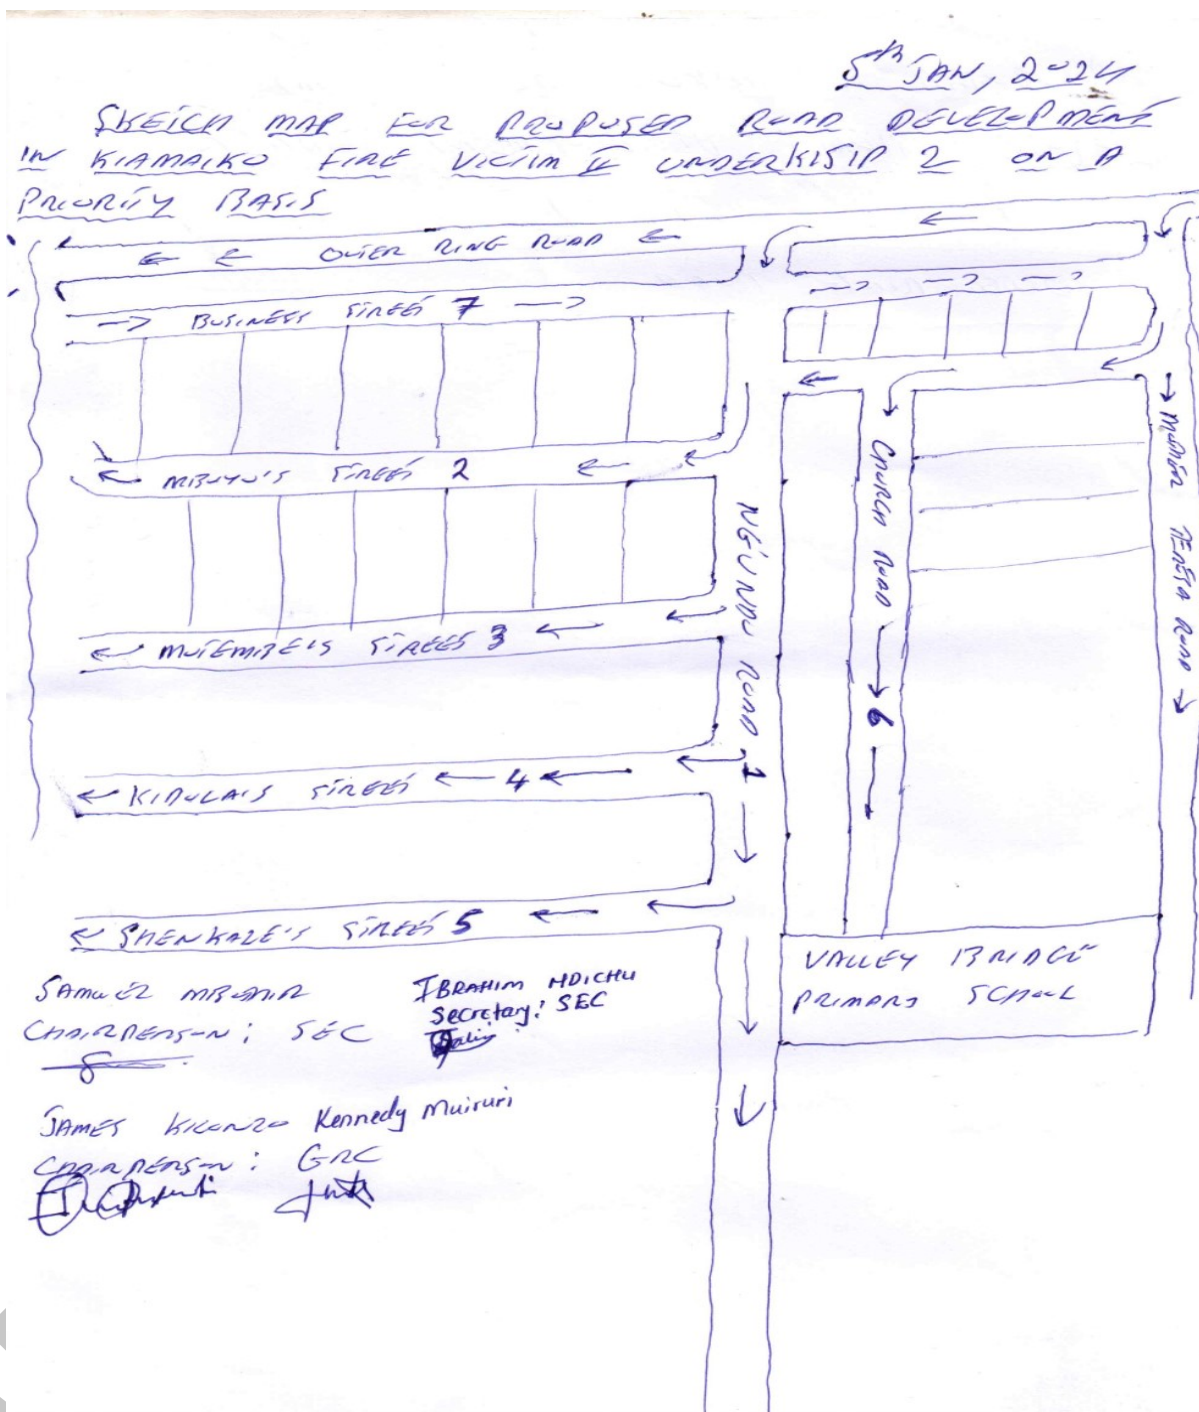 5th JAN, 2024
SKETCH MAP FOR PROPOSED ROAD DEVELOPMENT
IN KIAMAIKO FIRE VICTIM II UNDER KISIP 2 ON A
PRIORITY BASIS
OUTER RING ROAD
BUSINESS STREET 7
MBUYU'S STREET 2
MUTEMBEI'S STREET 3
KIDULA'S STREET 4
SHENKALE'S STREET 5
NGUNDU ROAD 1
CHURCH ROAD 6
MOTHER TERESA ROAD
VALLEY BRIDGE
PRIMARY SCHOOL
SAMUEL
CHAIRPERSON: SEC
IBRAHIM NDICHU
Secretary: SEC
JAMES KILONZO Kennedy Muiruri
CHAIRPERSON: GRC